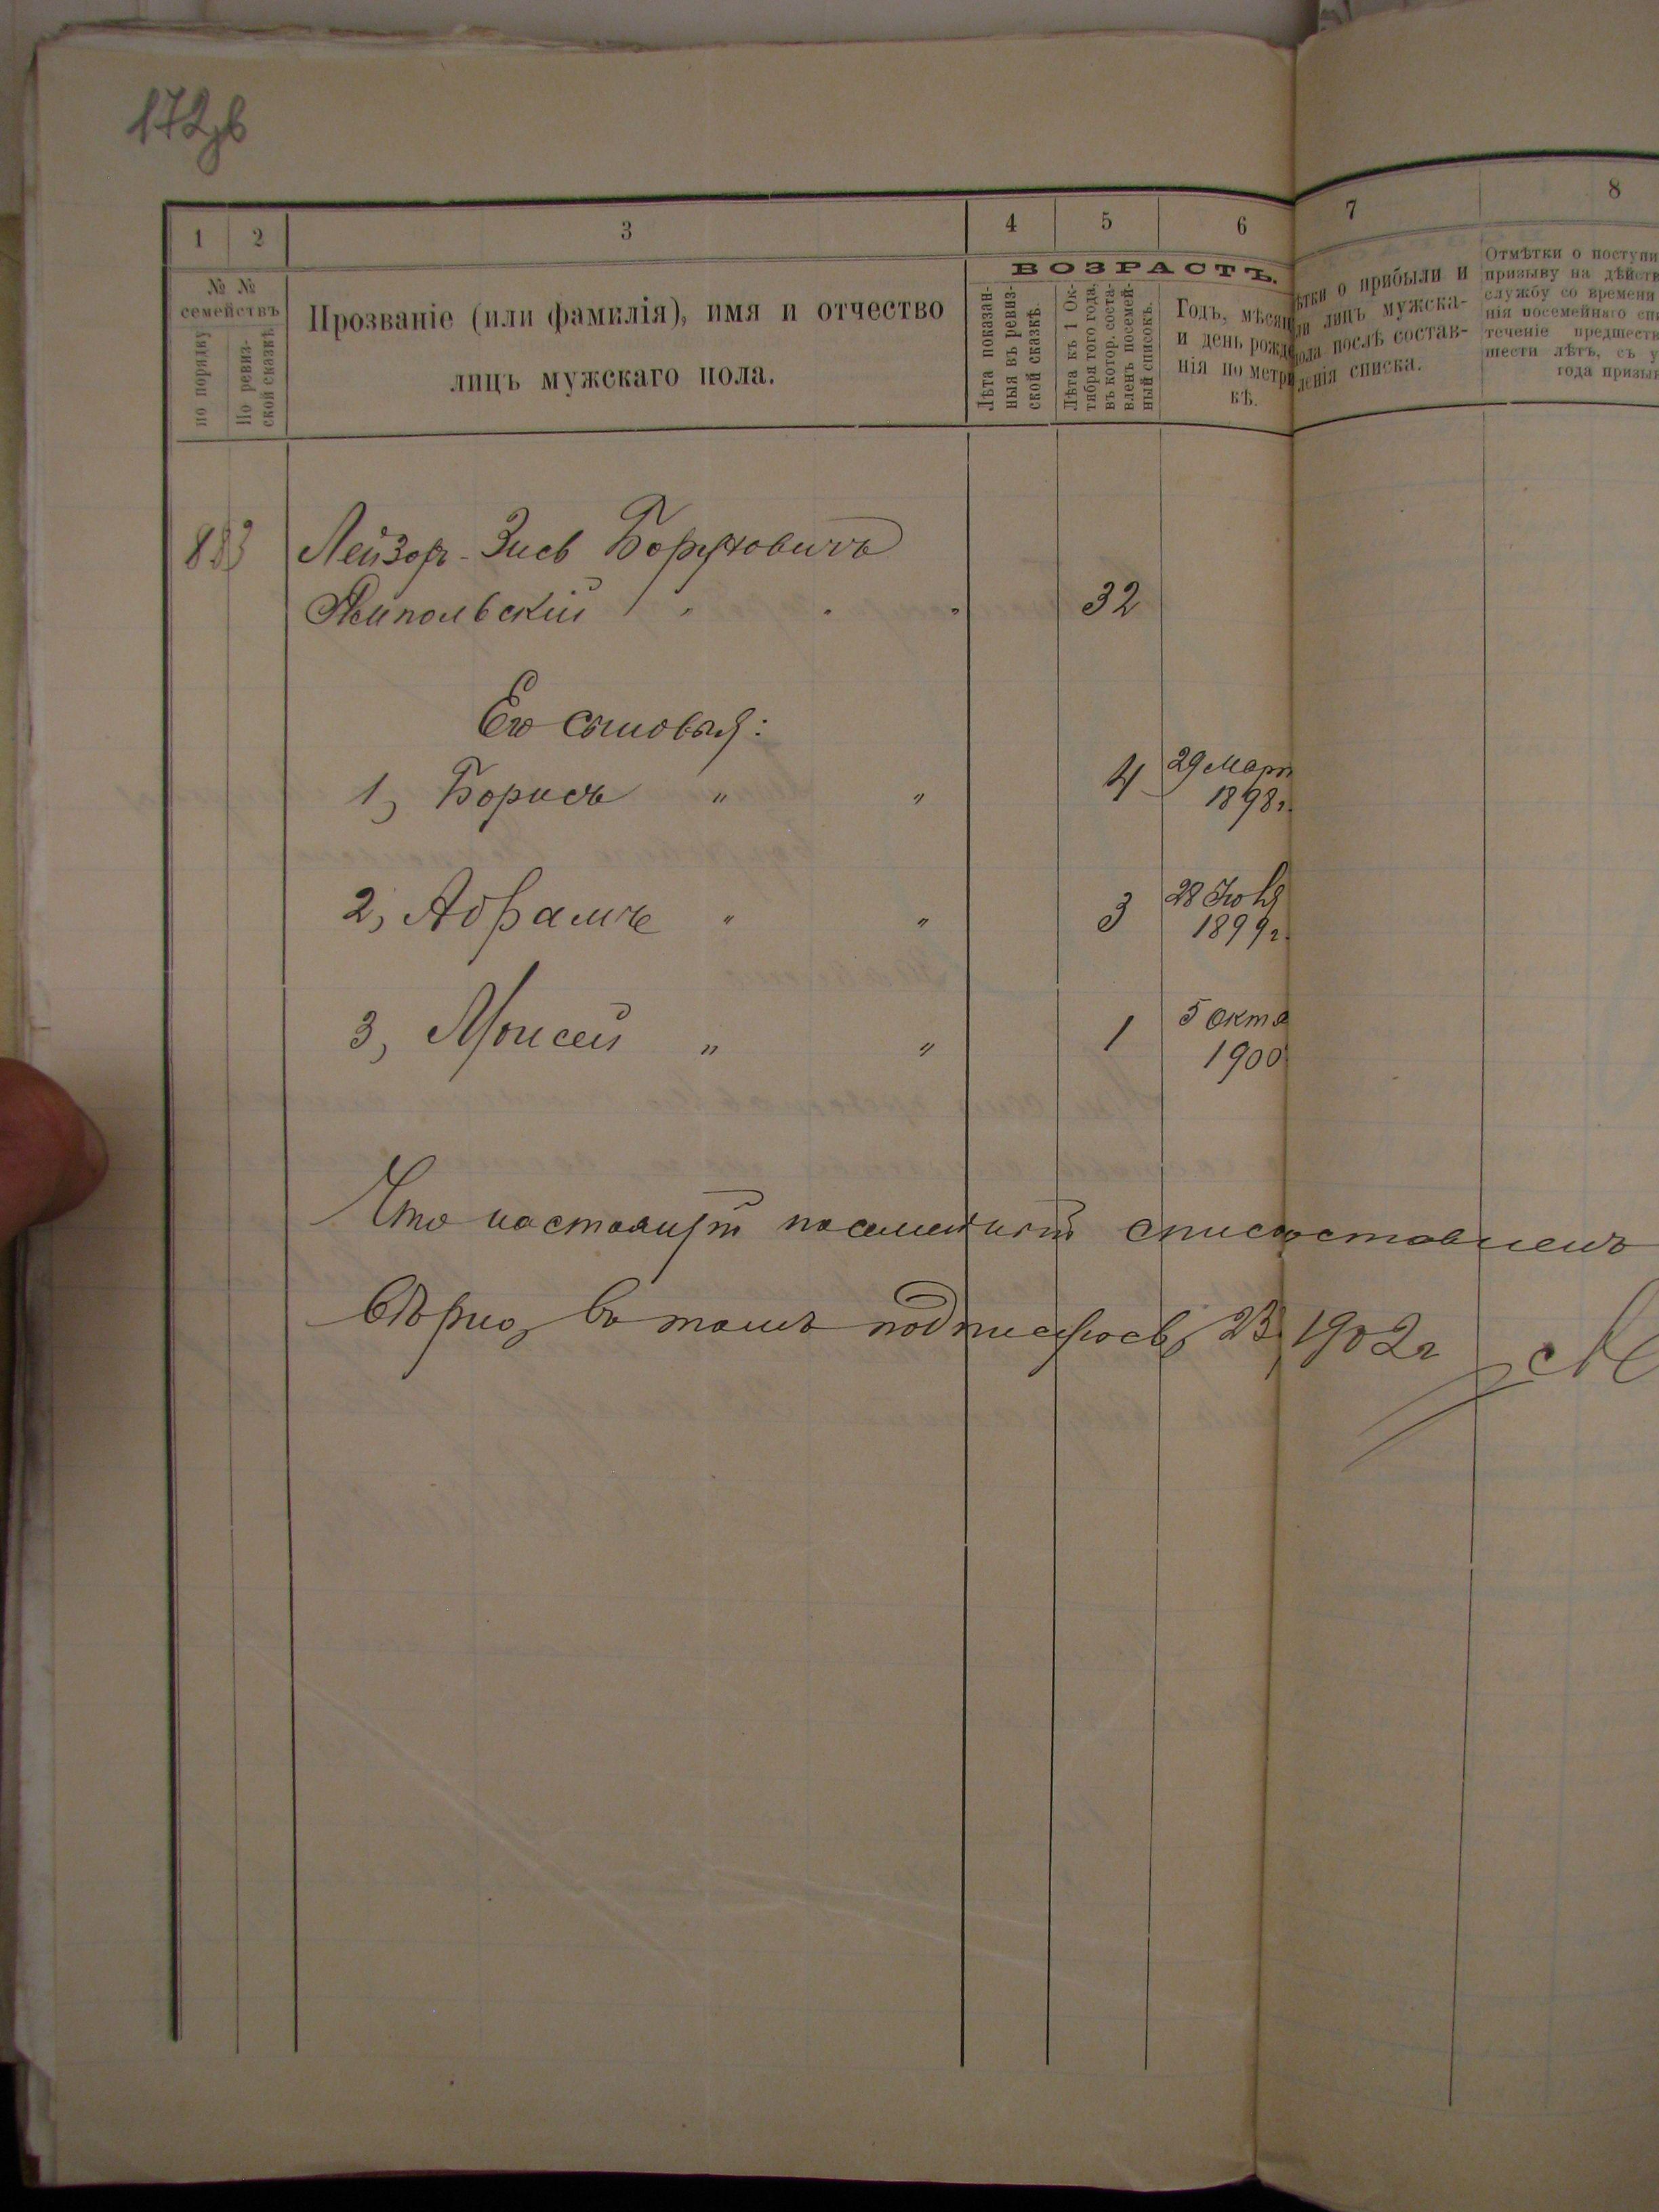 172об
1 2 3 4 5 6 7 8
№ № семействъ
по порядку
По ревиз-
ской сказкѣ
Прозваніе (или фамилія), имя и отчество
лицъ мужскаго пола.
ВОЗРАСТЪ.
Лѣта показан-
ныя въ ревиз-
ской сказкѣ.
Лѣта къ 1 Ок-
тября того года,
въ котор. соста-
вленъ посемей-
ный списокъ.
Годъ, мѣсяц
и день рожде
нія по метри
кѣ.
ѣтки о прибыли и
ли лицъ мужска-
пола послѣ состав-
ленія списка.
Отмѣтки о поступи
призыву на дѣйств
службу со времени
нія посемейнаго спи
теченіе предшеств
шести лѣтъ, съ у
года призыв
883 Лейзоръ-Зись Боруховичъ
Ямпольскій " " " 32
Его сыновья:
1, Борисъ " " 4 29 Март
1898 г.
2, Абрамъ " " 3 28 Іюля
1899 г.
3, Моисей " " 1 5 Октя
1900
Что настоящій посемейный списо составленъ
вѣрно, въ томъ подписуюсь, 1902 г